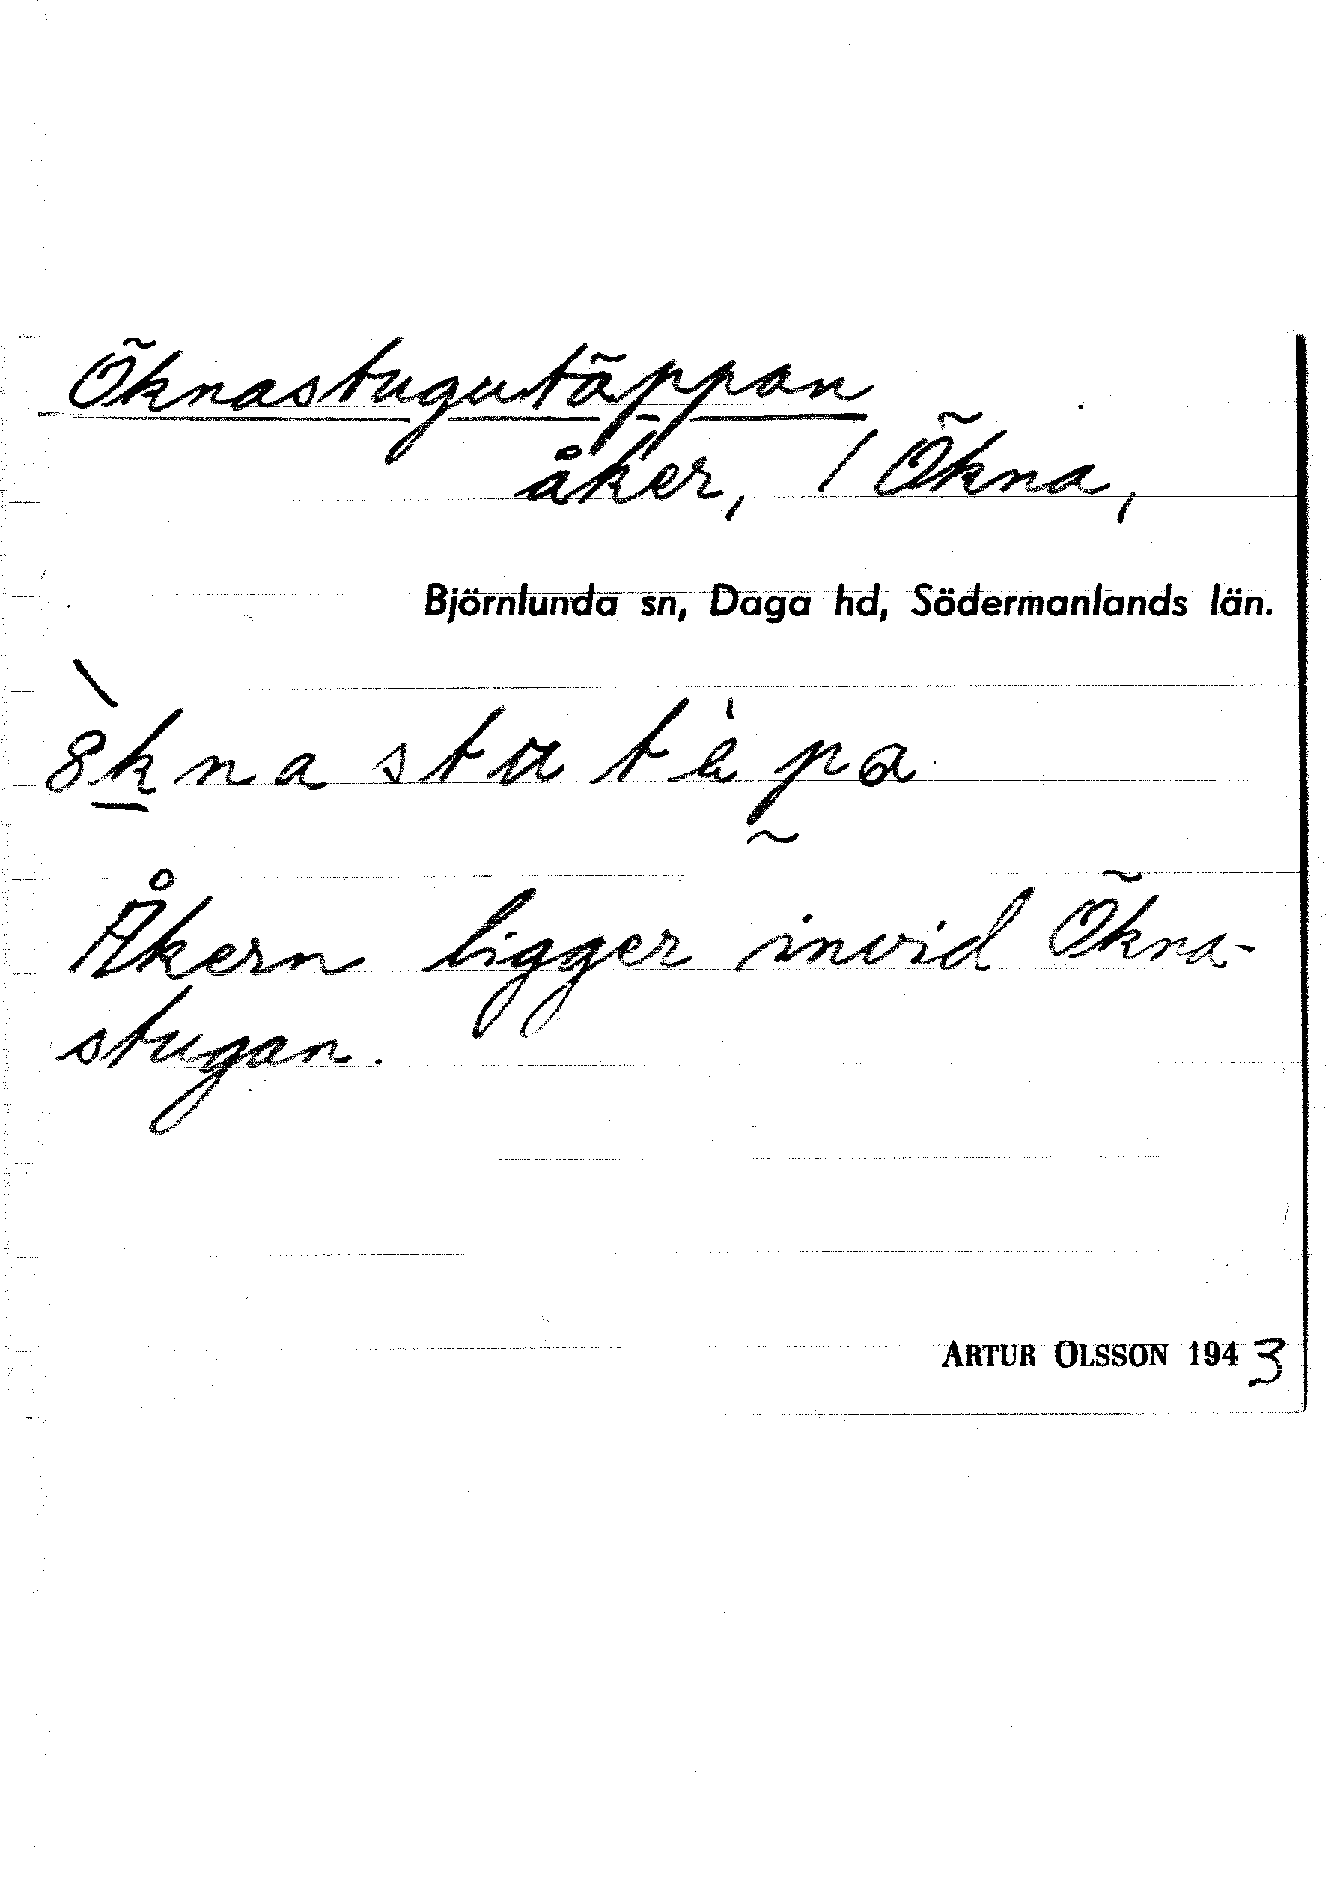 Öknastugutäppan
åker, / Ökna,
Björnlunda sn, Daga hd, Södermanlands län.
Åkern ligger invid Ökna-
stugan.
ARTUR OLSSON 1943